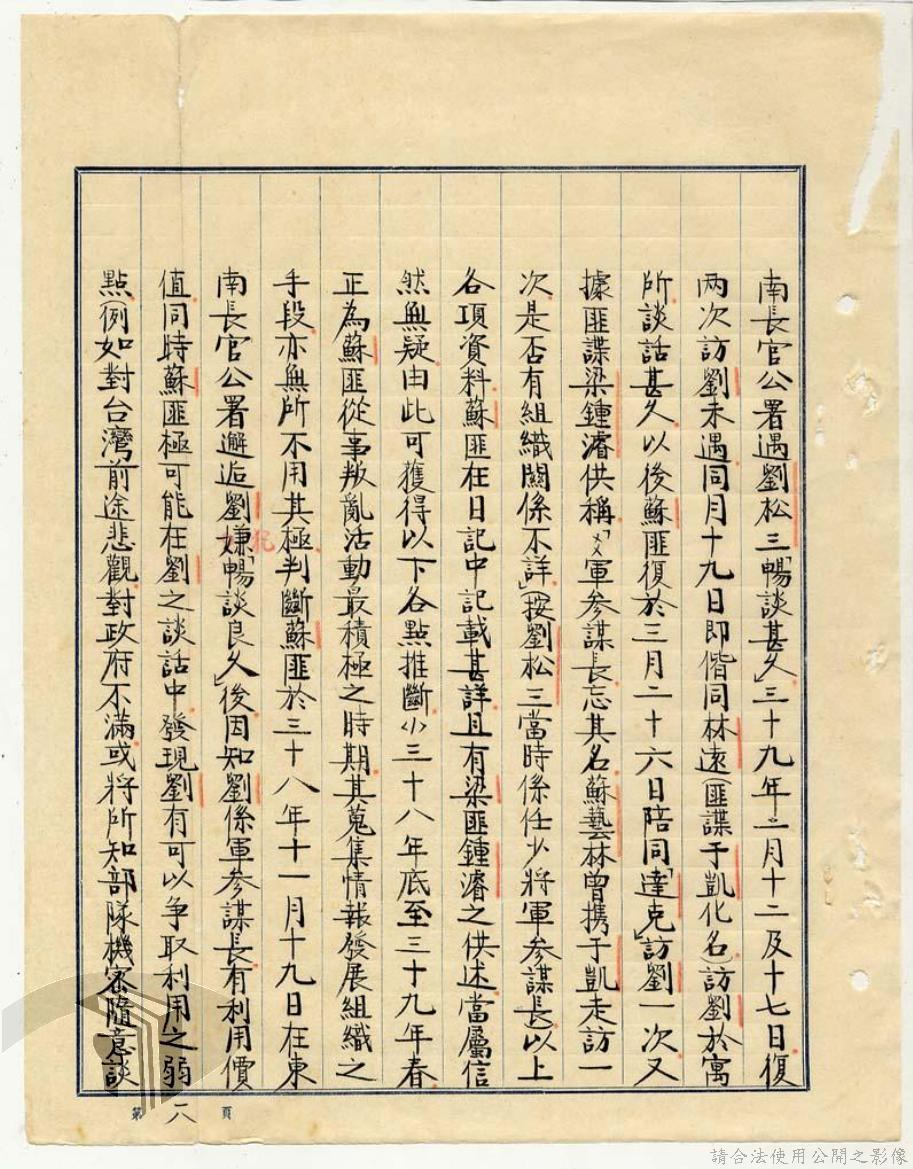 南長官公署遇劉松三「暢談甚久」三十九年二月十二及十七日復
兩次訪劉未遇同月十九日即偕同林遠(匪諜于凱化名)訪劉於寓
所談話甚久以後蘇匪復於三月二十六日陪同「達克」訪劉一次又
據匪諜梁鍾濬供稱「ㄨ軍參謀長忘其名蘇藝林曾携于凱走訪一
次是否有組織關係不詳」(按劉松三當時係任少將軍參謀長)以上
各項資料蘇匪在日記中記載甚詳且有梁匪鍾濬之供述當屬信
然無疑由此可獲得以下各點推斷小三十八年底至三十九年春
正為蘇匪從事叛亂活動最積極之時期其蒐集情報發展組織之
手段亦無所不用其極判斷蘇匪於三十八年十一月十九日在東
南長官公署邂逅劉嫌「暢談良久」後因知劉係軍參謀長有利用價
值同時蘇匪極可能在劉之談話中發現劉有可以争取利用之弱
點(例如對台灣前途悲觀對政府不滿或將所知部隊機密隨意談
第八頁
犯
請合法使用公開之影像